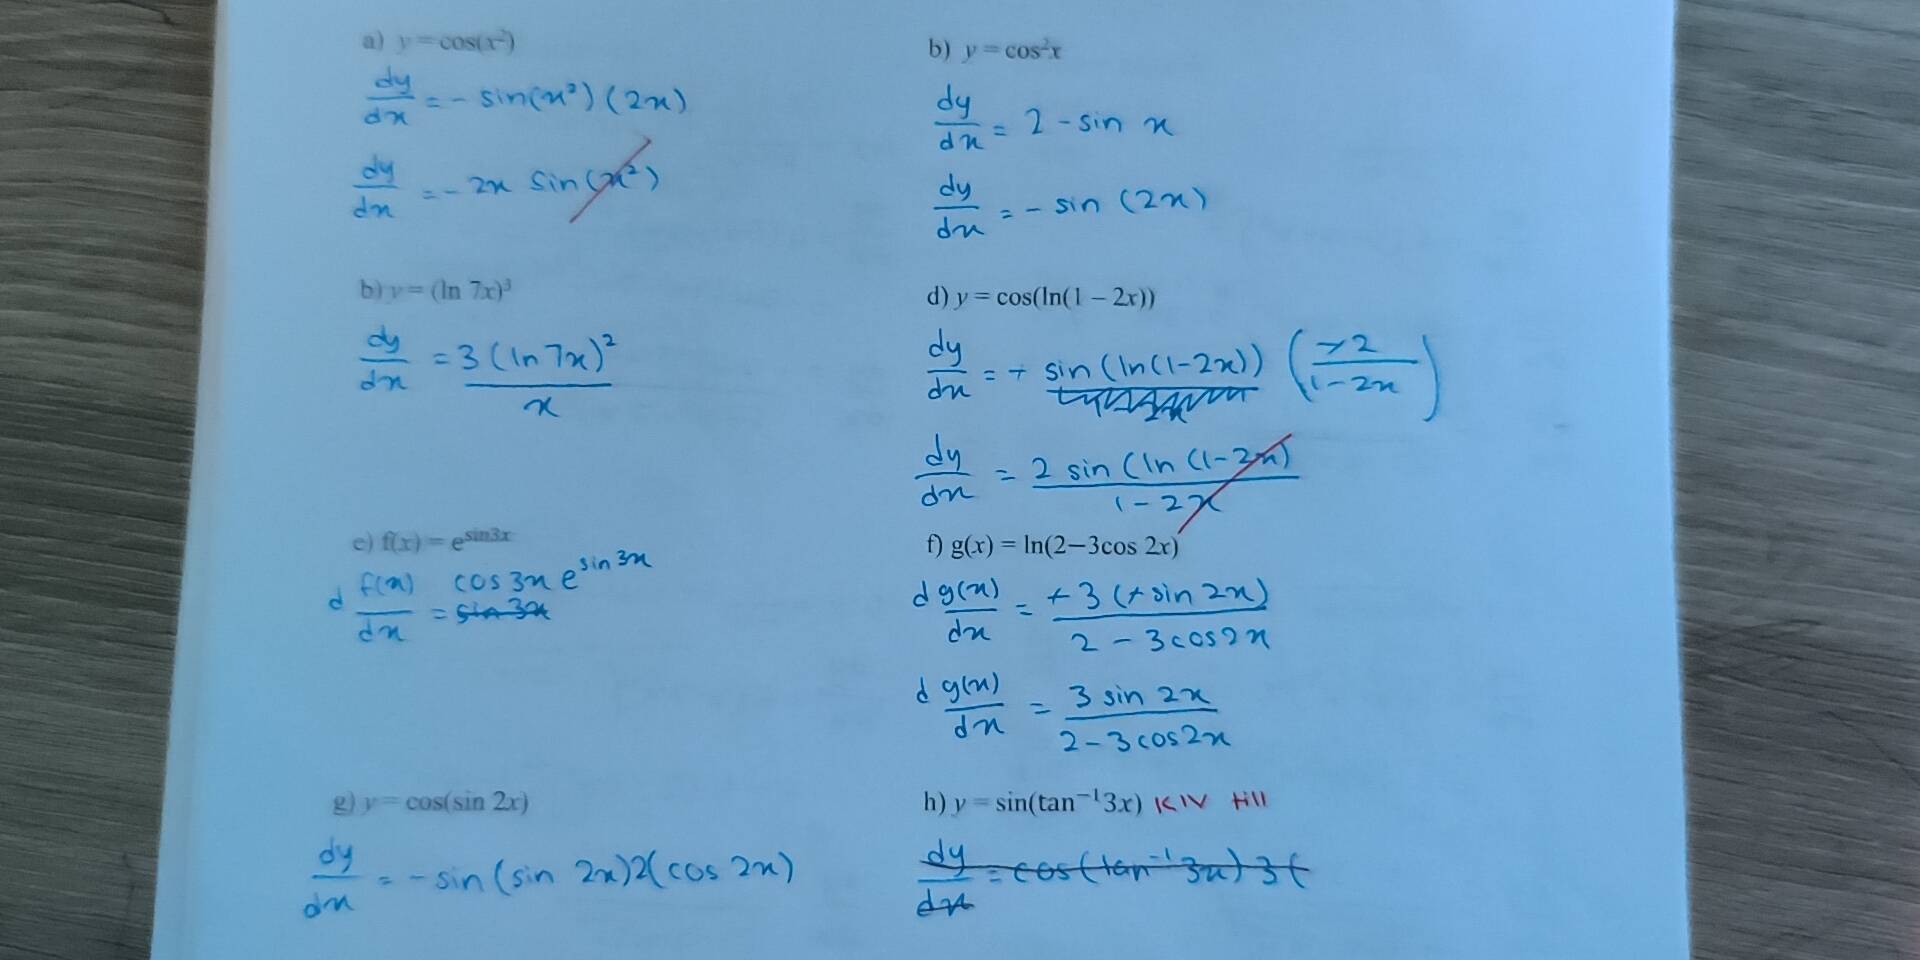 a) y = cos(x²)
dy/dx = - sin(x²) (2x)
dy/dx = - 2x sin (x²)
b) y = cos²x
dy/dx = 2 - sin x
dy/dx = - sin (2x)
b) y = (ln 7x)³
dy/dx = 3 (ln 7x)² / x
d) y = cos(ln(1 – 2x))
dy/dx = + sin (ln(1-2x)) (-2 / 1-2x)
dy/dx = 2 sin (ln (1-2x) / 1-2x
e) f(x) = e^sin3x
d f(x)/dx = cos 3x e^sin 3x
sin 3x
f) g(x) = ln(2–3cos 2x)
d g(x)/dx = + 3 (+ sin 2x) / 2 - 3cos2x
d g(x)/dx = 3 sin 2x / 2-3cos2x
g) y = cos(sin 2x)
dy/dx = - sin (sin 2x)2(cos 2x)
h) y = sin(tan⁻¹3x) KIV till
dy/dx = cos(tan⁻¹ 3x) 3 (